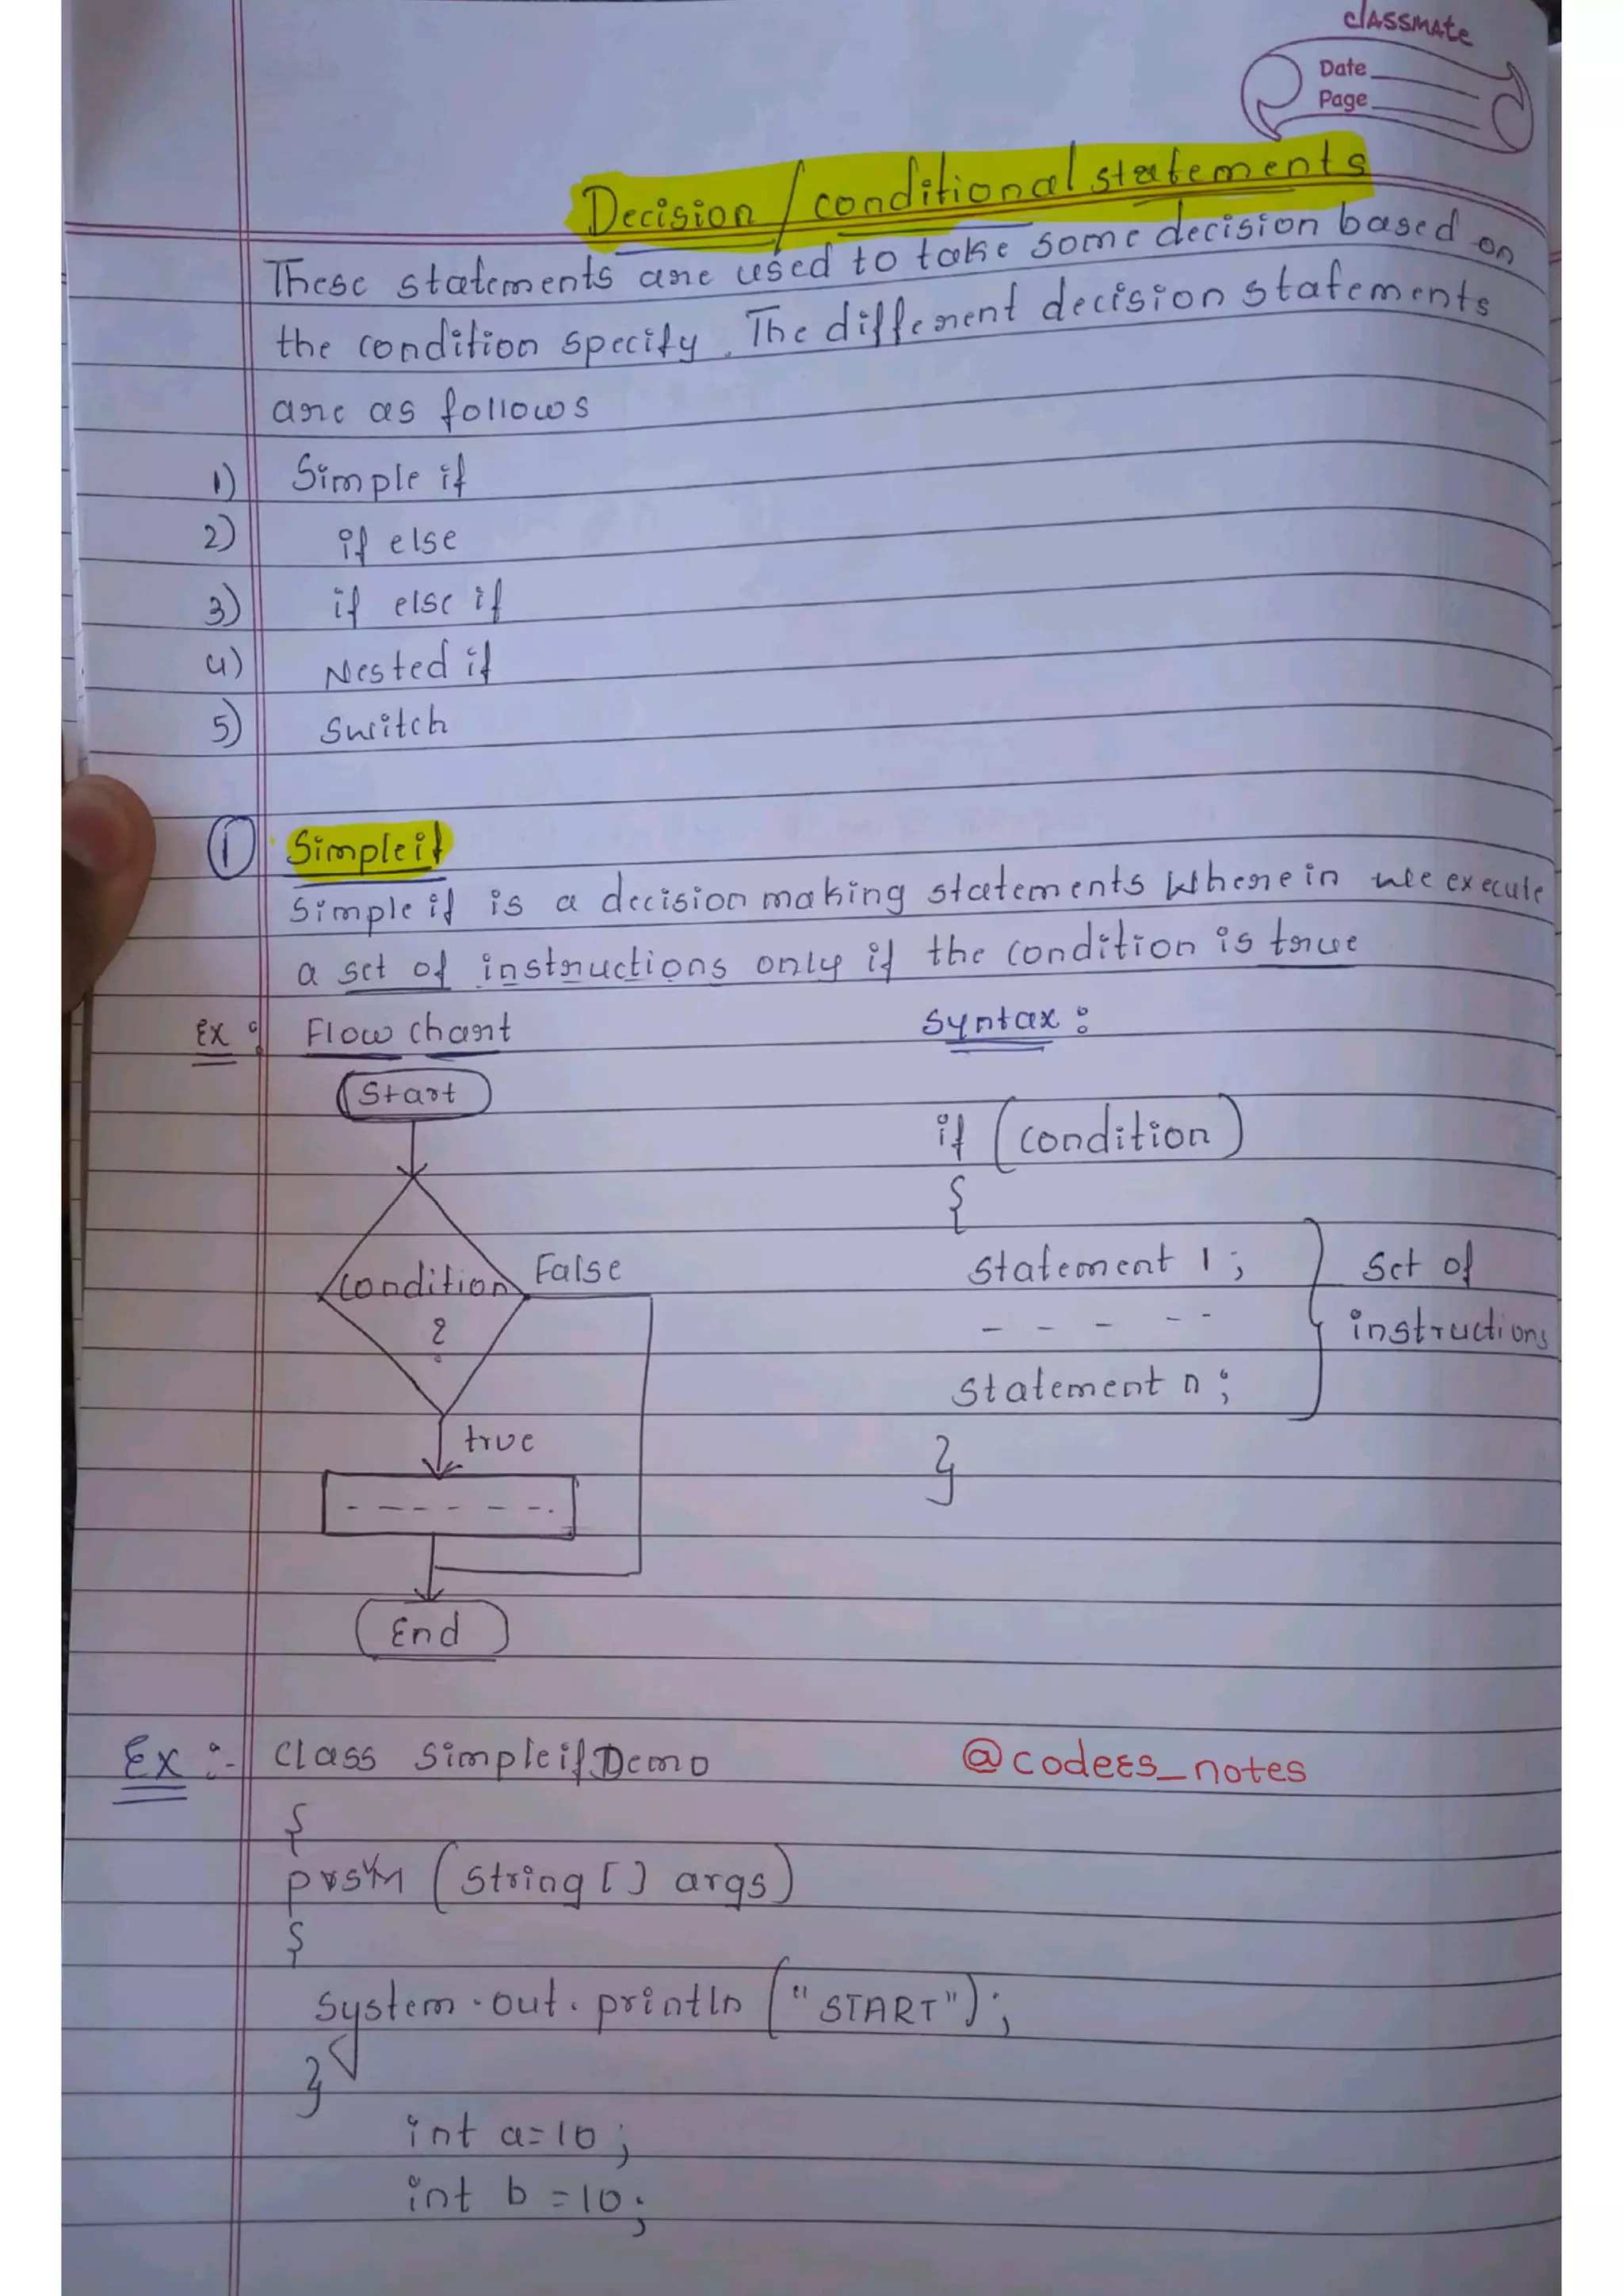 classmate
Date
Page
Decision / conditional statements
These statements are used to take some decision based on
the condition specify. The different decision statements
are as follows
1) Simple if
2) if else
3) if else if
4) Nested if
5) Switch
1 Simple if
Simple if is a decision making statements wherein we execute
a set of instructions only if the condition is true
Ex : Flow chart
Syntax :
Start
Condition
?
False
true
- - - - - - -
End
if (condition)
{
Statement 1 ;
- - - - -
Statement n ;
}
Set of
instructions
Ex :- class simpleifDemo
@codees_notes
{
psvm (string [] args)
{
System.out.println ("START");
}
int a=10 ;
int b =10 ;